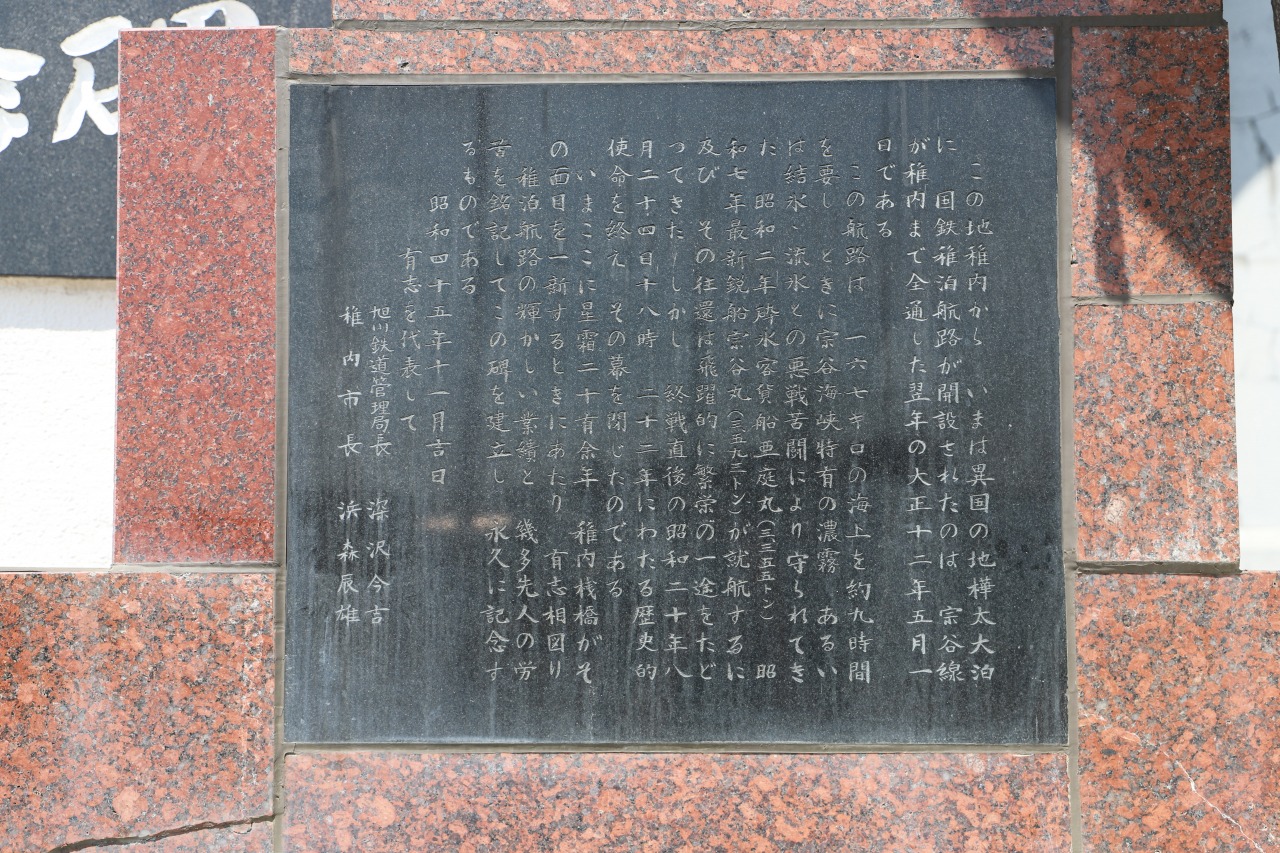 この地稚内から　いまは異国の地樺太大泊
に　国鉄稚泊航路が開設されたのは　宗谷線
が稚内まで全通した翌年の大正十二年五月一
日である
この航路は　一六七キロの海上を約九時間
を要し　ときに宗谷海峡特有の濃霧　あるい
は結氷、流氷との悪戦苦闘により守られてき
た　昭和二年砕氷客貨船亜庭丸（三三五五トン）　昭
和七年最新鋭船宗谷丸（三五九三トン）が就航するに
及び　その往還は飛躍的に繁栄の一途をたど
つてきた　しかし　終戦直後の昭和二十年八
月二十四日十八時　二十二年にわたる歴史的
使命を終え　その幕を閉じたのである
いまここに星霜二十有余年　稚内桟橋がそ
の面目を一新するときにあたり　有志相図り
稚泊航路の輝かしい業績と　幾多先人の労
苦を銘記してこの碑を建立し　永久に記念す
るものである
昭和四十五年十一月吉日
有志を代表して
旭川鉄道管理局長　深沢今吉
稚内市長　浜森辰雄